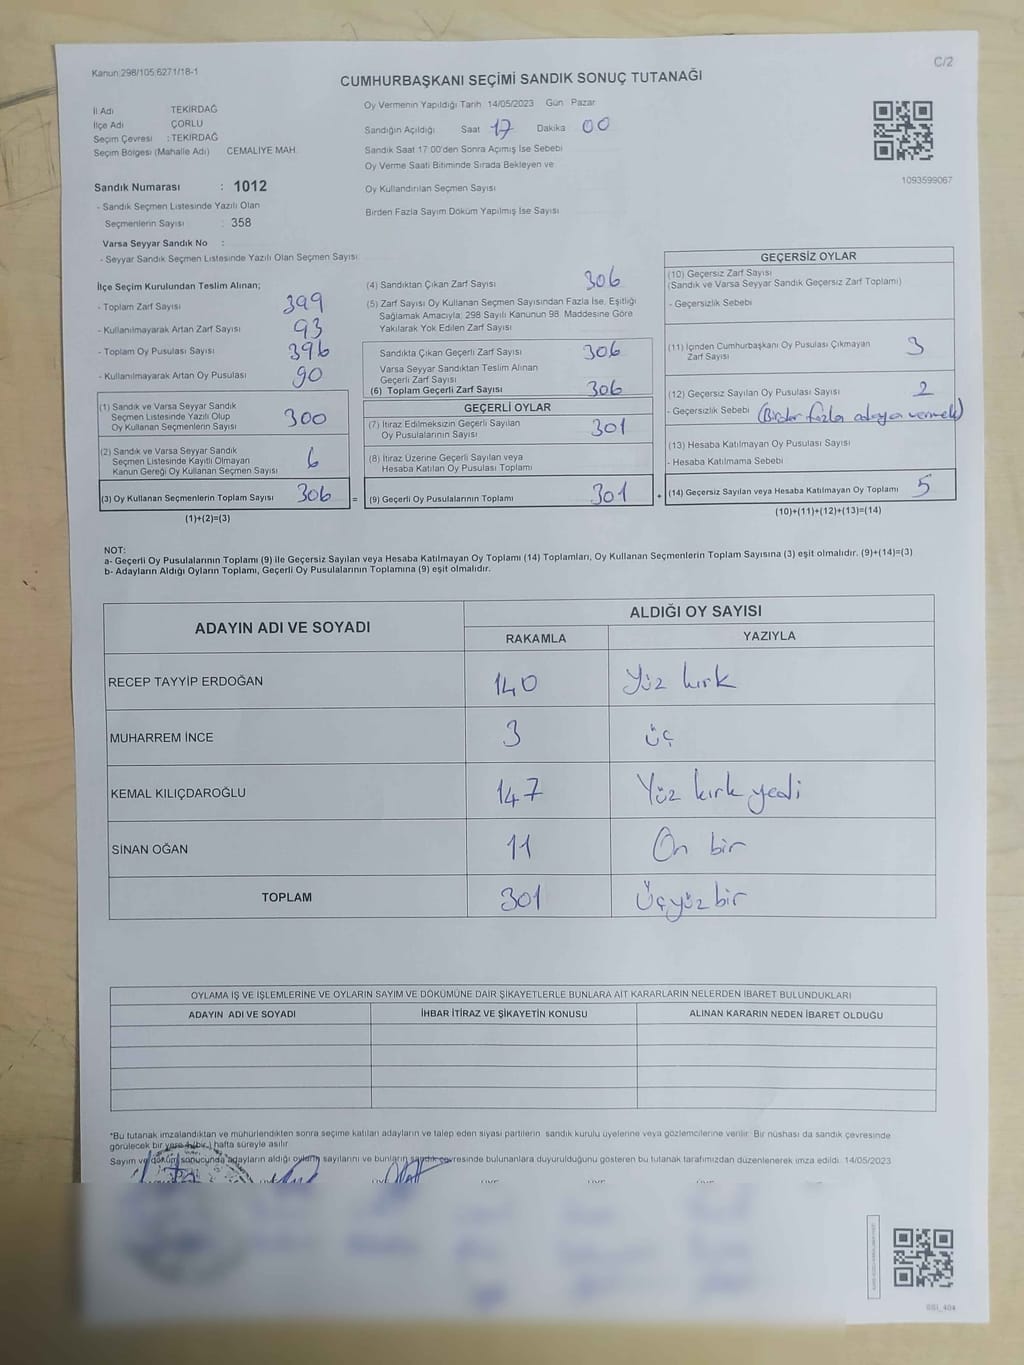 Kanun:298/105,6271/18-1
C/2
CUMHURBAŞKANI SEÇİMİ SANDIK SONUÇ TUTANAĞI
İl Adı TEKİRDAĞ
İlçe Adı ÇORLU
Seçim Çevresi : TEKİRDAĞ
Seçim Bölgesi (Mahalle Adı) CEMALİYE MAH.
Oy Vermenin Yapıldığı Tarih 14/05/2023 Gün Pazar
Sandığın Açıldığı Saat 17 Dakika 00
Sandık Saat 17:00'den Sonra Açımış İse Sebebi
Oy Verme Saati Bitiminde Sırada Bekleyen ve
Oy Kullandırılan Seçmen Sayısı
Birden Fazla Sayım Döküm Yapılmış İse Sayısı
1093599067
Sandık Numarası : 1012
- Sandık Seçmen Listesinde Yazılı Olan
Seçmenlerin Sayısı : 358
Varsa Seyyar Sandık No :
- Seyyar Sandık Seçmen Listesinde Yazılı Olan Seçmen Sayısı
İlçe Seçim Kurulundan Teslim Alınan;
- Toplam Zarf Sayısı 399
- Kullanılmayarak Artan Zarf Sayısı 93
- Toplam Oy Pusulası Sayısı 396
- Kullanılmayarak Artan Oy Pusulası 90
(1) Sandık ve Varsa Seyyar Sandık
Seçmen Listesinde Yazılı Olup
Oy Kullanan Seçmenlerin Sayısı 300
(2) Sandık ve Varsa Seyyar Sandık
Seçmen Listesinde Kayıtlı Olmayan
Kanun Gereği Oy Kullanan Seçmen Sayısı 6
(3) Oy Kullanan Seçmenlerin Toplam Sayısı 306 =
(1)+(2)=(3)
(4) Sandıktan Çıkan Zarf Sayısı 306
(5) Zarf Sayısı Oy Kullanan Seçmen Sayısından Fazla İse, Eşitliği
Sağlamak Amacıyla; 298 Sayılı Kanunun 98. Maddesine Göre
Yakılarak Yok Edilen Zarf Sayısı
Sandıkta Çıkan Geçerli Zarf Sayısı 306
Varsa Seyyar Sandıktan Teslim Alınan
Geçerli Zarf Sayısı
(6) Toplam Geçerli Zarf Sayısı 306
GEÇERLİ OYLAR
(7) İtiraz Edilmeksizin Geçerli Sayılan
Oy Pusulalarının Sayısı 301
(8) İtiraz Üzerine Geçerli Sayılan veya
Hesaba Katılan Oy Pusulası Toplamı
(9) Geçerli Oy Pusulalarının Toplamı 301 +
GEÇERSİZ OYLAR
(10) Geçersiz Zarf Sayısı
(Sandık ve Varsa Seyyar Sandık Geçersiz Zarf Toplamı)
- Geçersizlik Sebebi
(11) İçinden Cumhurbaşkanı Oy Pusulası Çıkmayan
Zarf Sayısı 3
(12) Geçersiz Sayılan Oy Pusulası Sayısı 2
- Geçersizlik Sebebi (Birden fazla adaya vermek)
(13) Hesaba Katılmayan Oy Pusulası Sayısı
- Hesaba Katılmama Sebebi
(14) Geçersiz Sayılan veya Hesaba Katılmayan Oy Toplamı 5
(10)+(11)+(12)+(13)=(14)
NOT:
a- Geçerli Oy Pusulalarının Toplamı (9) ile Geçersiz Sayılan veya Hesaba Katılmayan Oy Toplamı (14) Toplamları, Oy Kullanan Seçmenlerin Toplam Sayısına (3) eşit olmalıdır. (9)+(14)=(3)
b- Adayların Aldığı Oyların Toplamı, Geçerli Oy Pusulalarının Toplamına (9) eşit olmalıdır.
ADAYIN ADI VE SOYADI
ALDIĞI OY SAYISI
RAKAMLA YAZIYLA
RECEP TAYYİP ERDOĞAN 140 Yüz kırk
MUHARREM İNCE 3 üç
KEMAL KILIÇDAROĞLU 147 Yüz kırk yedi
SİNAN OĞAN 11 On bir
TOPLAM 301 Üçyüz bir
OYLAMA İŞ VE İŞLEMLERİNE VE OYLARIN SAYIM VE DÖKÜMÜNE DAİR ŞİKAYETLERLE BUNLARA AİT KARARLARIN NELERDEN İBARET BULUNDUKLARI
ADAYIN ADI VE SOYADI İHBAR İTİRAZ VE ŞİKAYETİN KONUSU ALINAN KARARIN NEDEN İBARET OLDUĞU
*Bu tutanak imzalandıktan ve mühürlendikten sonra seçime katılan adayların ve talep eden siyasi partilerin sandık kurulu üyelerine veya gözlemcilerine verilir. Bir nüshası da sandık çevresinde
görülecek bir yere 1 (bir) hafta süreyle asılır.
Sayım ve döküm sonucunda adayların aldığı oyların sayılarını ve bunların sandık çevresinde bulunanlara duyurulduğunu gösteren bu tutanak tarafımızdan düzenlenerek imza edildi. 14/05/2023